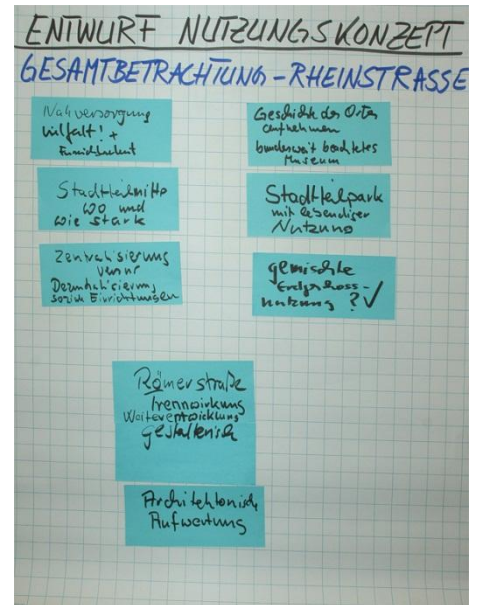 ENTWURF NUTZUNGSKONZEPT
GESAMTBETRACHTUNG - RHEINSTRASSE
Nahversorgung
vielfalt! +
Stadtteilmitte
wo und
wie stark
Zentralisierung
versus
Dezentralisierung
sozialer Einrichtungen
Geschichte des Ortes
aufnehmen
bundesweit beachtetes
Museum
Stadtteilpark
mit lebendiger
Nutzung
gemischte
Erdgeschoss-
nutzung ? ✓
Römerstraße
Trennwirkung
Weiterentwicklung
gestalterisch
Architektonische
Aufwertung